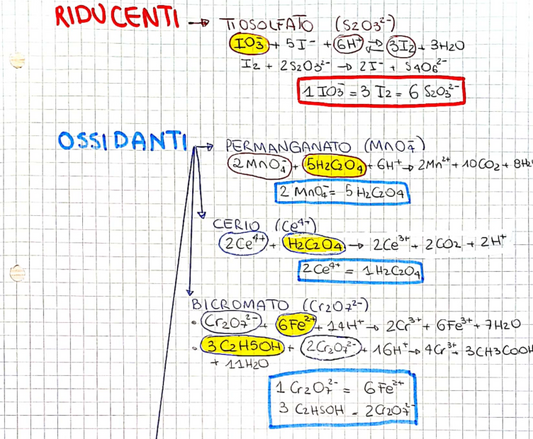 RIDUCENTI → TIOSOLFATO (S₂O₃²⁻)
IO₃⁻ + 5I⁻ + 6H⁺ ⇄ 3I₂ + 3H₂O
I₂ + 2S₂O₃²⁻ → 2I⁻ + S₄O₆²⁻
1 IO₃⁻ = 3 I₂ = 6 S₂O₃²⁻
OSSIDANTI → PERMANGANATO (MnO₄⁻)
2MnO₄⁻ + 5H₂C₂O₄ + 6H⁺ → 2Mn²⁺ + 10CO₂ + 8H₂
2 MnO₄⁻ = 5H₂C₂O₄
CERIO (Ce⁴⁺)
2Ce⁴⁺ + H₂C₂O₄ → 2Ce³⁺ + 2CO₂ + 2H⁺
2Ce⁴⁺ = 1H₂C₂O₄
BICROMATO (Cr₂O₇²⁻)
• Cr₂O₇²⁻ + 6Fe²⁺ + 14H⁺ → 2Cr³⁺ + 6Fe³⁺ + 7H₂O
• 3C₂H5OH + 2Cr₂O₇²⁻ + 16H⁺ → 4Cr³⁺ + 3CH3COOH
+ 11H₂O
1 Cr₂O₇²⁻ = 6Fe²⁺
3 C₂H5OH = 2Cr₂O₇²⁻